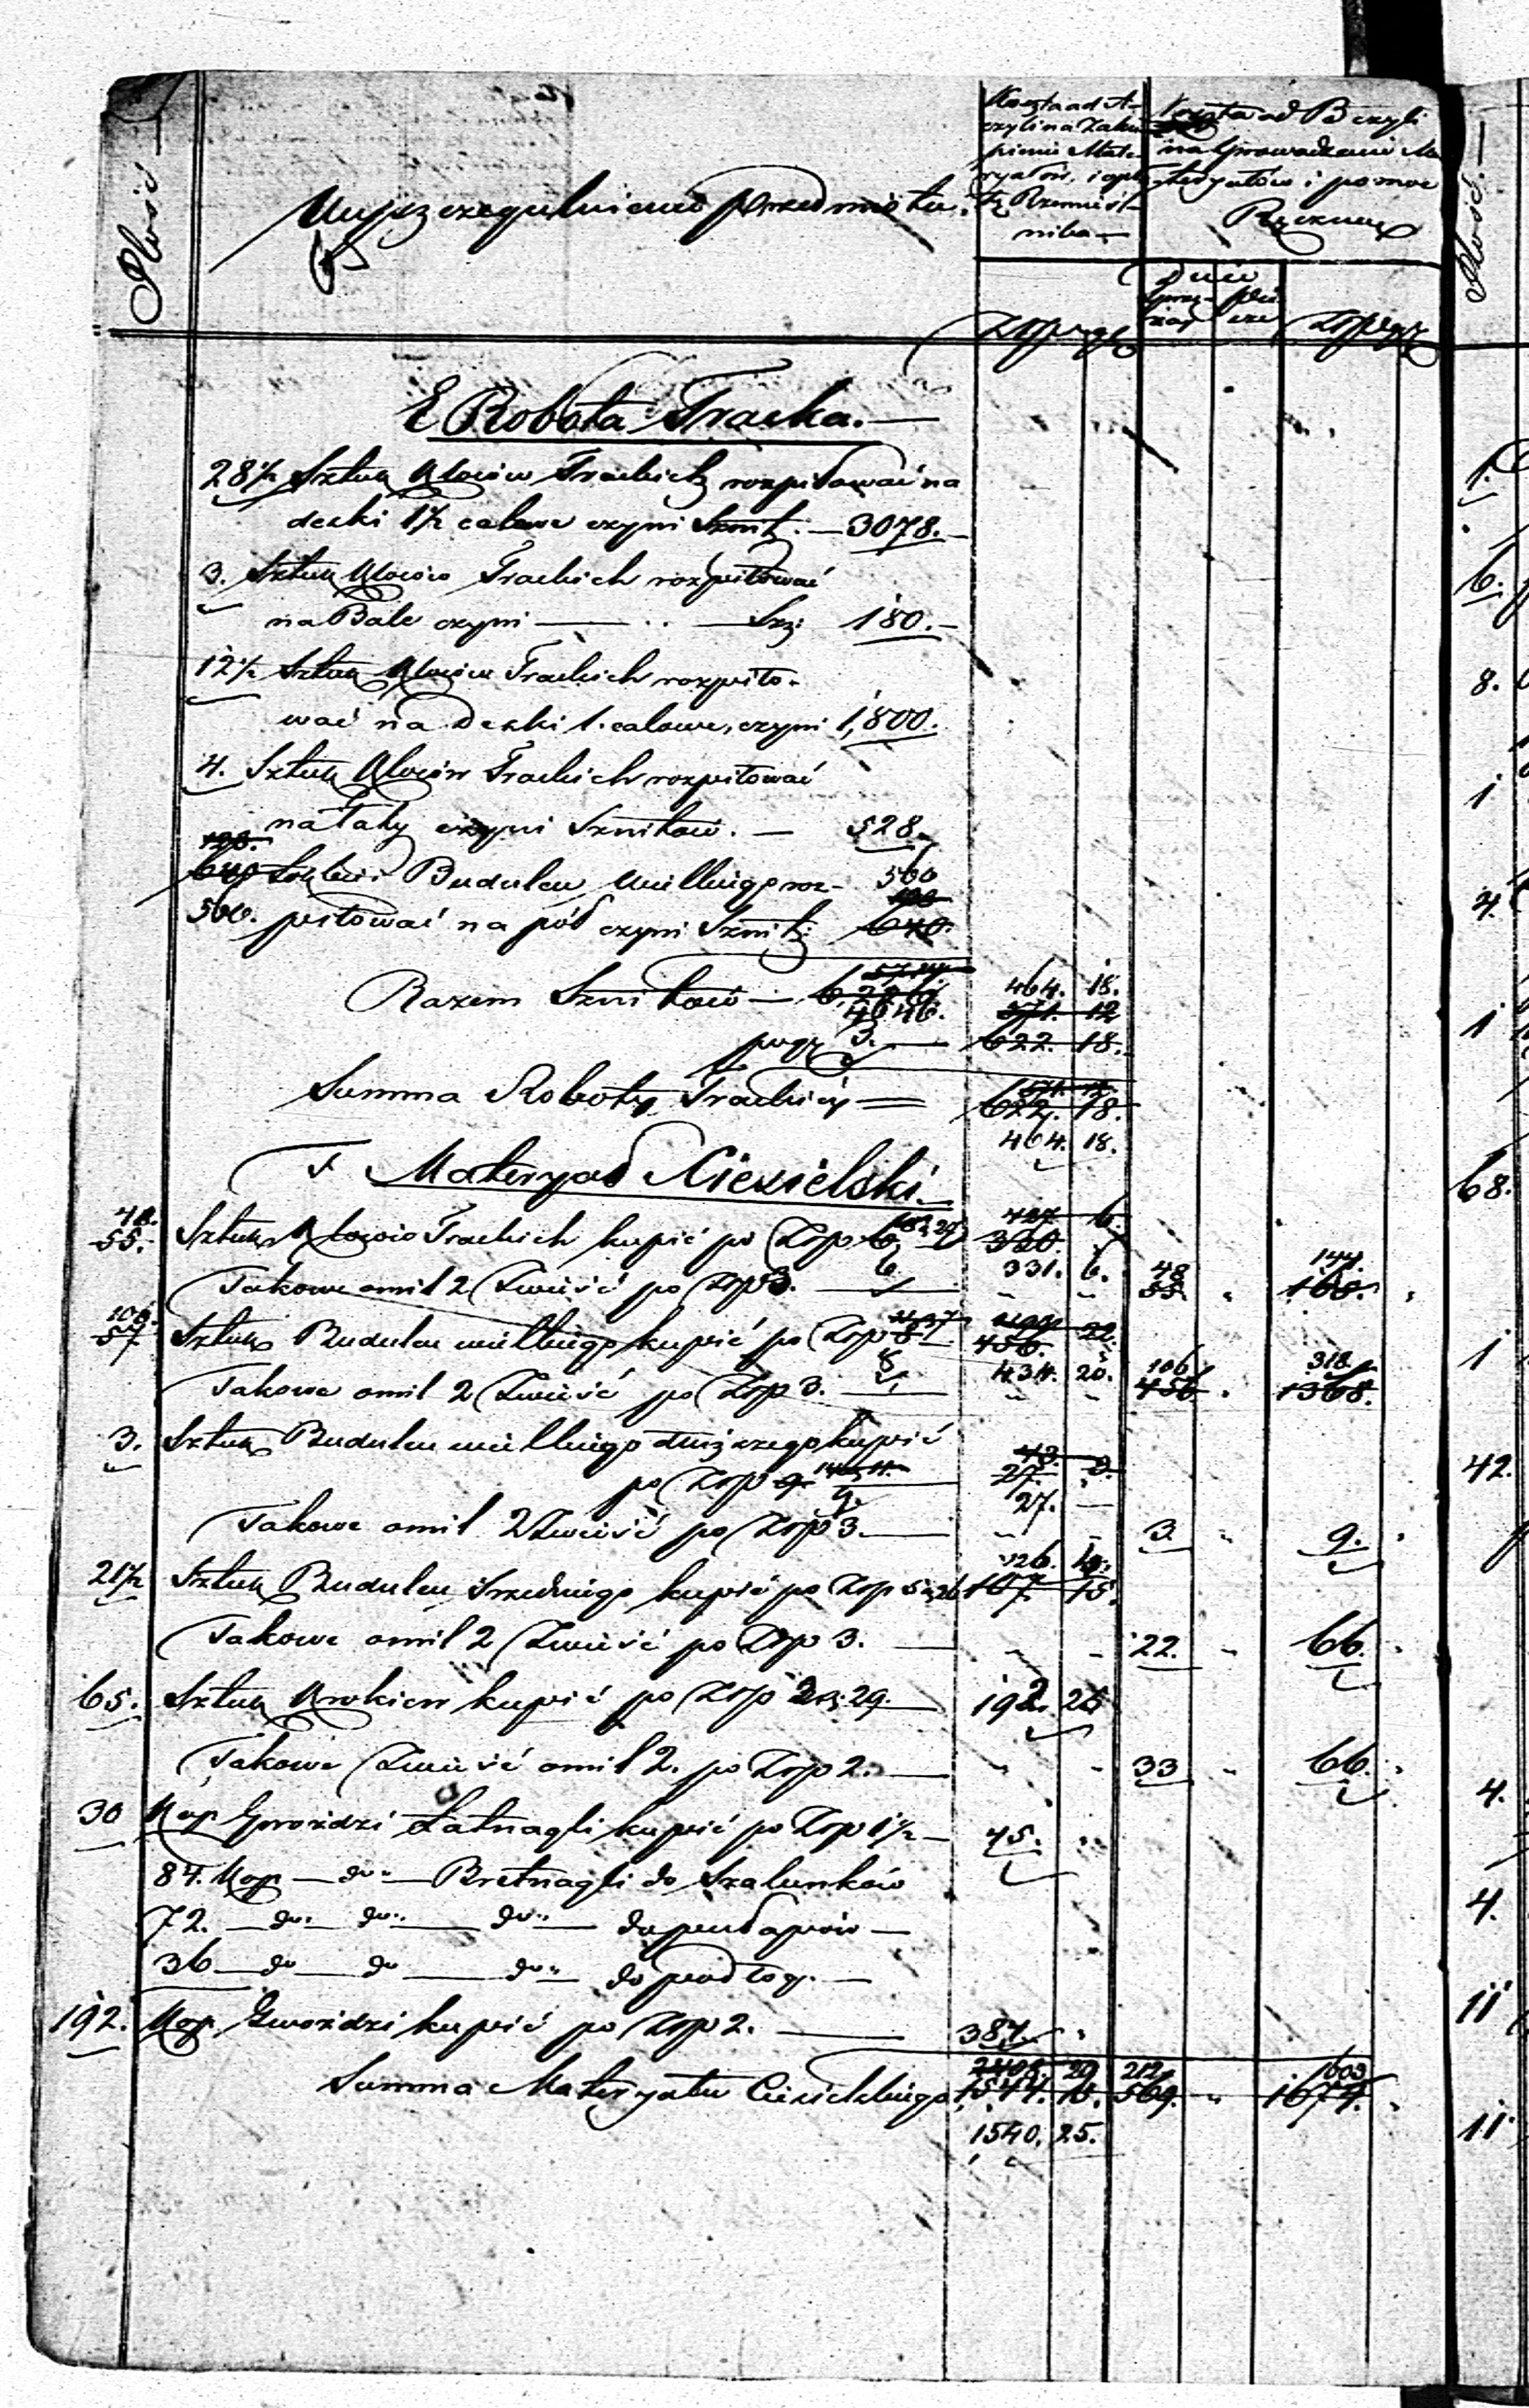 Ilość
Wyszczególnienie Przedmiotu.
Koszta ad A
czyli na Zaku-
pienie Mate-
ryałów, i opła-
tę Rzemieśl-
nika
Koszta ad B czyli
na Sprowadzenie Ma-
teryałów i pomoc
Ręczną
Dnie
Sprzę- Pie-
żaj sze
Złp gr
Złp gr
E Robota Tracka.
28½ Sztuk Kloców Trackich rozpiłować na
deski 1½ calowe czyni Sznit. — 3078.
3. Sztuk Kloców Trackich rozpiłować
na Bale czyni — Sz: 180.
12½ Sztuk Kloców Trackich rozpiło-
wać na Deski 1. calowe, czyni 1,800.
4. Sztuk Kloców Trackich rozpiłować
na Łaty czyni Sznitów. — 528.
640 Budulcu wielkiego roz- 560
560. piłować na pół czyni Sznit: 640.
Razem Sznitów — 4646. 464. 18.
571. 12
po gr 3. — 622. 18.
Summa Roboty Trackiey = 622. 18.
464. 18.
F Materyał Ciesielski.
48.
55. Sztuk Kloców Trackich kupić po Złp 6 330.
Takowe o mil 2 Zwieść po Złp 3. 331. 6. 48 144.
55. 165.
106.
57. Sztuk Budulcu wielkiego kupić po Złp 8 456. 22.
434. 20.
Takowe o mil 2 Zwieść po Złp 3. — 106 318
456. 1368.
3. Sztuk Budulcu wielkiego dłuższego kupić
po Złp 9. 43. 3.
27.
27. —
Takowe o mil 2 Zwieść po Złp 3. — 3. 9.
21½ Sztuk Budulcu Średniego kupić po Złp 5 126.
107. 15.
Takowe o mil 2 Zwieść po Złp 3. — 22. 66.
65. Sztuk Krokiew kupić po Złp 2 gr 29. — 192. 25
Takowe Zwieść o mil 2. po Złp 2. — 33 66.
30 Kop Gwoździ Łatnagli kupić po Złp 1½ — 45.
84. Kop — do — Bretnagli do Szalunków
72. — do — do — do — do pułapów —
36 — do — do — do — do podłog. —
192. Kop Gwoździ kupić po Złp 2. — 384.
Summa Materyału Ciesielskiego 1544. 10. 569. 1674.
212 603
1540. 25.
Ilość
1.
6.
8.
1
4.
1
68.
1
42.
4.
4.
11
11.